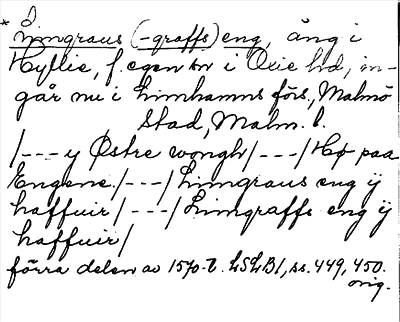 * Limgraus (-graffs) eng, äng i
Hyllie, f. egen sn i Oxie hd, in-
går nu i Limhamns förs., Malmö
stad, Malm. l.
/---y Østre wongh/---/Hø paa
Engene./---/Limgraus eng ÿ
haffuir/---/Limgraffs eng ÿ
haffuir/
förra delen av 1570-t. LSLB1, ss. 449, 450.
orig.